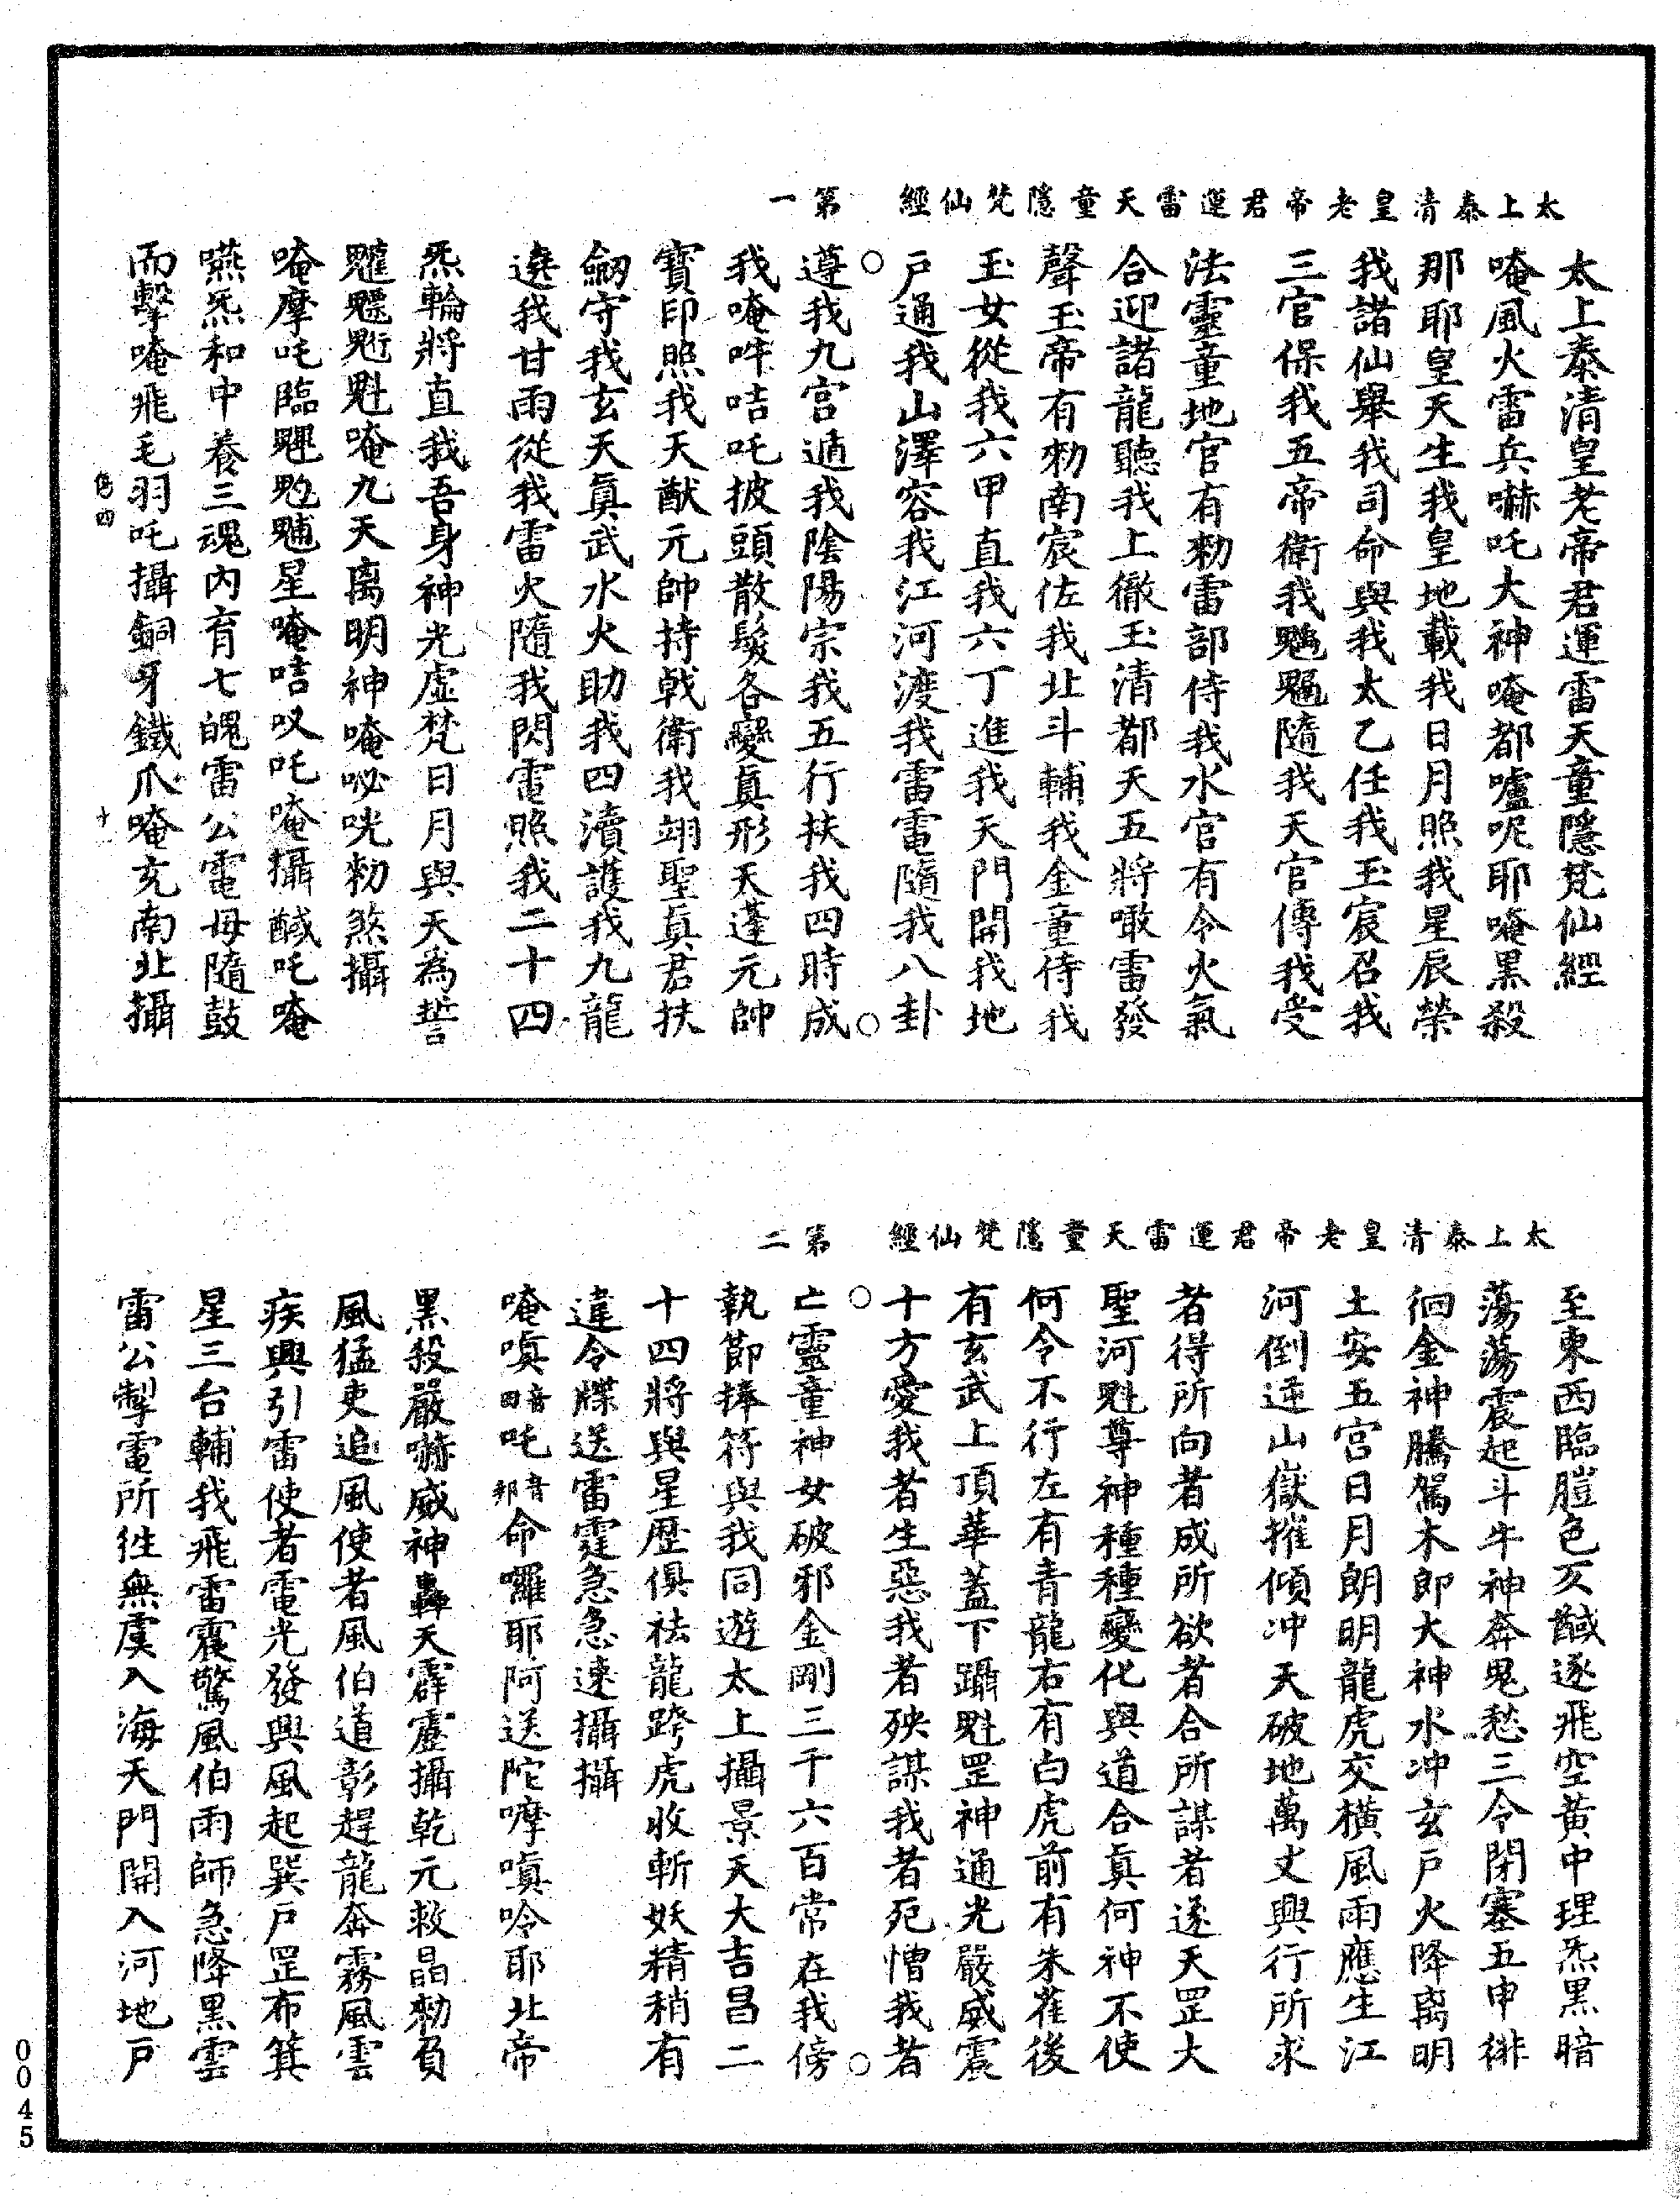 太上泰清皇老帝君運雷天童隱梵仙經　第一
太上泰清皇老帝君運雷天童隱梵仙經
唵風火雷兵嚇吒大神唵都嚧呢耶唵黑殺
那耶皇天生我皇地載我日月照我星辰榮
我諸仙舉我司命與我太乙任我玉宸召我
三官保我五帝衛我隨我天官傳我受
法靈童地官有勑雷部侍我水官有令火氣
合迎諸龍聽我上徹玉清都天五將嗷雷發
聲玉帝有勑南宸佐我北斗輔我金童侍我
玉女從我六甲直我六丁進我天門開我地
戶通我山澤容我江河渡我雷電隨我八卦
遵我九宮遁我陰陽宗我五行扶我四時成
我唵吽咭吒披頭散髮各變真形天蓬元帥
寶印照我天猷元帥持戟衛我翊聖真君扶
劒守我玄天眞武水火助我四瀆護我九龍
遶我甘雨從我雷火隨我閃電照我二十四
炁輪將直我吾身神光虛梵日月與天為誓
魁唵九天离明神唵咇咣勑煞攝
唵摩吒臨星唵咭吒唵攝馘吒唵
嚥炁和中養三魂內育七魄雷公電母隨鼓
而擊唵飛毛羽吒攝銅牙鐵爪唵南北攝
傷四
十
太上泰清皇老帝君運雷天童隱梵仙經　第二
至東西臨色馘逐飛空黃中理炁黑暗
蕩蕩震起斗牛神奔鬼愁三令閉塞五申徘
徊金神騰駕木郎大神水冲玄戶火降离明
土安五宮日月朗明龍虎交橫風雨應生江
河倒逆山嶽摧傾冲天破地萬丈興行所求
者得所向者成所欲者合所謀者遂天罡大
聖河魁尊神種種變化與道合真何神不使
何令不行左有青龍右有白虎前有朱雀後
有玄武上頂華蓋下躡魁罡神通光嚴威震
十方愛我者生惡我者殃謀我者死憎我者
亡靈童神女破邪金剛三千六百常在我傍
執節捧符與我同遊太上攝景天大吉昌二
十四將與星歷俱袪龍跨虎收斬妖精稍有
違令牒送雷霆急急速攝攝
唵嗔音田吒音那命囉耶阿送陀嚤嗔唥耶北帝
黑殺嚴嚇威神轟天霹靂攝乾元救晶勑負
風猛吏追風使者風伯道彰趕龍奔霧風雲
疾興引雷使者電光發興風起巽戶罡布箕
星三台輔我飛雷震驚風伯雨師急降黑雲
雷公掣電所徃無虞入海天門開入河地戶
0045